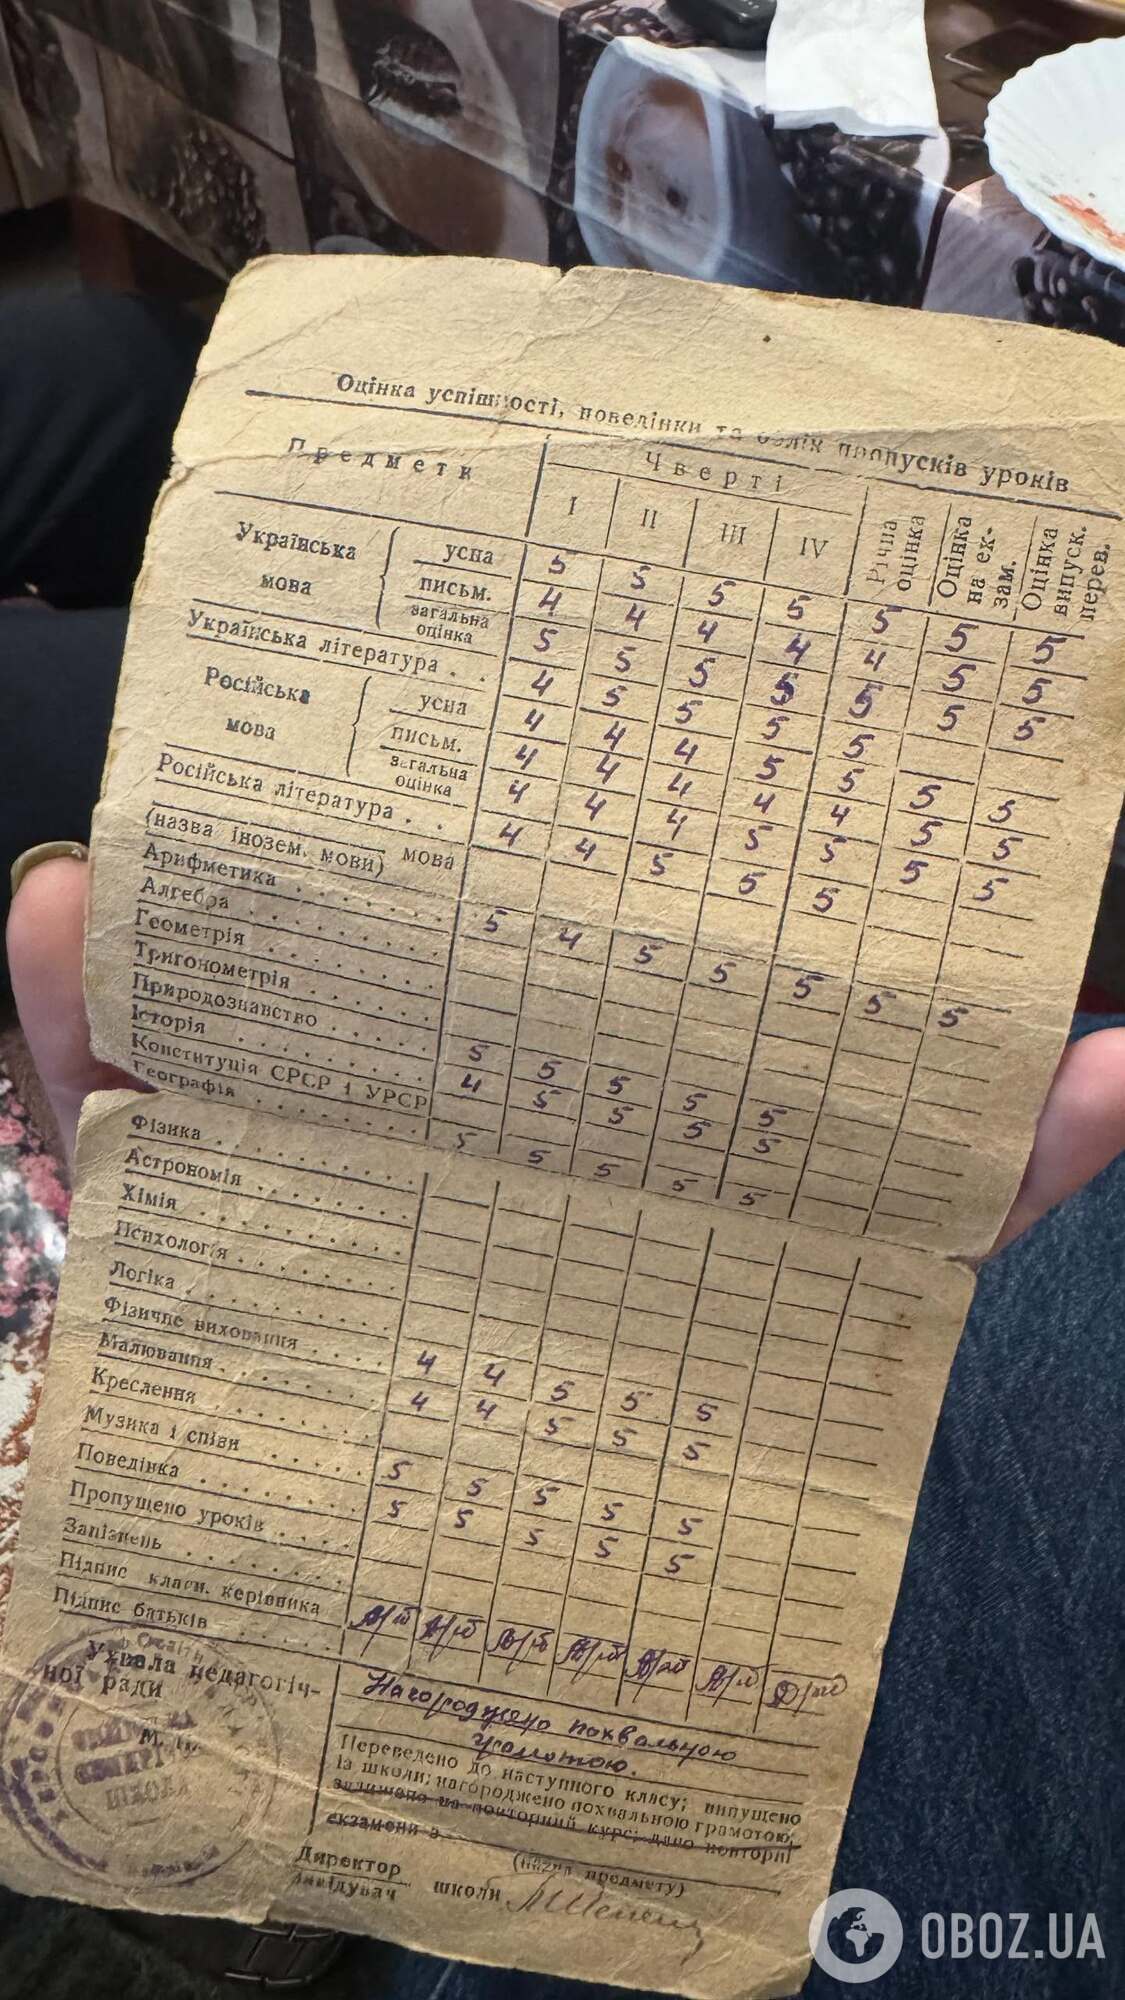 Оцінка успішності, поведінки та облік пропусків уроків
Предмети
Чверті
I II III IV
Річна оцінка
Оцінка на екзам.
Оцінка випуск. перев.
Українська мова
усна 5 5 5 5 5 5 5
письм. 4 4 4 4 4 5 5
загальна оцінка 5 5 5 5 5 5 5
Українська література . . 4 5 5 5 5
Російська мова
усна 4 4 4 5 5 5 5
письм. 4 4 4 4 4 5 5
загальна оцінка 4 4 4 5 5 5 5
Російська література . . 4 4 5 5 5
мова
(назва інозем. мови)
Арифметика 5 4 5 5 5 5 5
Алгебра
Геометрія
Тригонометрія
Природознавство 5 5 5 5 5
Історія 4 5 5 5 5
Конституція СРСР і УРСР
Географія 5 5 5 5 5
Фізика
Астрономія
Хімія
Психологія
Логіка
Фізичне виховання 4 4 5 5 5
Малювання 4 4 5 5 5
Креслення
Музика і співи 5 5 5 5 5
Поведінка 5 5 5 5 5
Пропущено уроків
Запізнень
Підпис класн. керівника
Підпис батьків
Ухвала педагогіч-
ної ради
Нагороджено похвальною
грамотою.
Переведено до наступного класу; випущено
із школи; нагороджено похвальною грамотою,
залишено на повторний курс; дано повторні
екзамени з
(назва предмету)
Директор
завідувач школи
OBOZ.UA